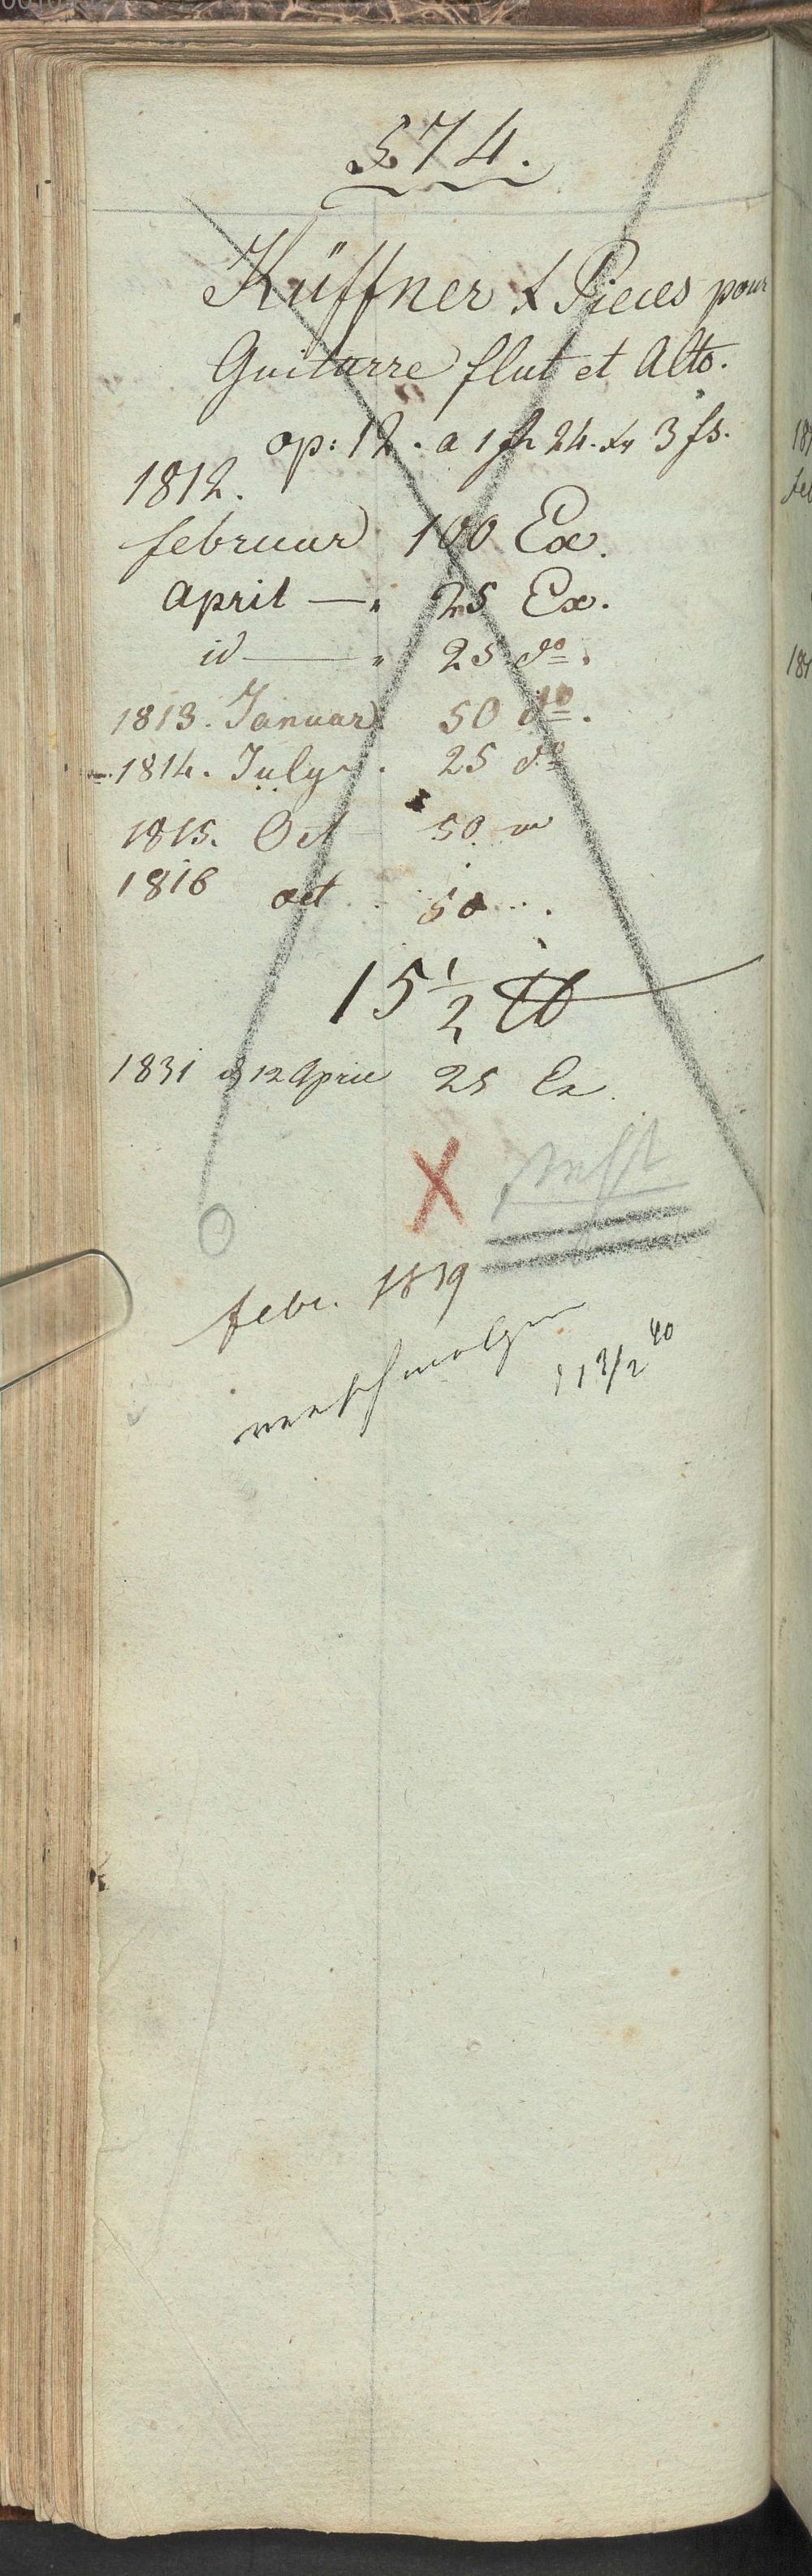 574.
Küffner Pieces pour
Guitarre flut et Alto.
op: 12. a 1 fl 24. xr 3 fs.
1812.
februar 100 Ex.
April — " 25 Ex.
id — " 25 do.
1813. Januar 50 do.
1814. July 25 do
1815. Oct 50
1816 oct 50
15 1/2 ℔
1831 d 12 April 25 Ex
X
febr. 1839
verschmolzen